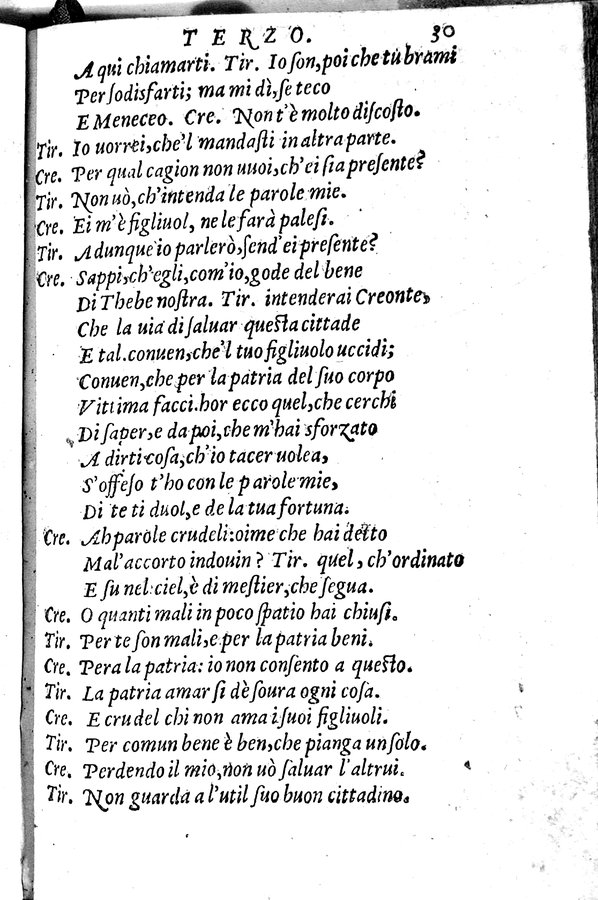 TERZO. 30
A qui chiamarti. Tir. Io ſon, poi che tu brami
Per ſodisfarti; ma mi dì, ſe teco
E Meneceo. Cre. Non t'è molto diſcoſto.
Tir. Io uorrei, che'l mandaſti in altra parte.
Cre. Per qual cagion non uuoi, ch'ei ſia preſente?
Tir. Non uò, ch'intenda le parole mie.
Cre. Ei m'è figliuol, ne le farà paleſi.
Tir. Adunque io parlerò, ſend'ei preſente?
Cre. Sappi, ch'egli, com'io, gode del bene
Di Thebe noſtra. Tir. intenderai Creonte,
Che la uia di ſaluar queſta cittade
E tal. conuen, che'l tuo figliuolo uccidi;
Conuen, che per la patria del ſuo corpo
Vittima facci. hor ecco quel, che cerchi
Di ſaper, e da poi, che m'hai sforzato
A dirti coſa, ch'io tacer uolea,
S'offeſo t'ho con le parole mie,
Di te ti duol, e de la tua fortuna.
Cre. Ah parole crudeli: oime che hai detto
Mal'accorto indouin? Tir. quel, ch'ordinato
E ſu nel ciel, è di meſtier, che ſegua.
Cre. O quanti mali in poco ſpatio hai chiuſi.
Tir. Per te ſon mali, e per la patria beni.
Cre. Pera la patria: io non conſento a queſto.
Tir. La patria amar ſi dè ſoura ogni coſa.
Cre. E crudel chi non ama i ſuoi figliuoli.
Tir. Per comun bene è ben, che pianga un ſolo.
Cre. Perdendo il mio, non uò ſaluar l'altrui.
Tir. Non guarda a l'util ſuo buon cittadino.